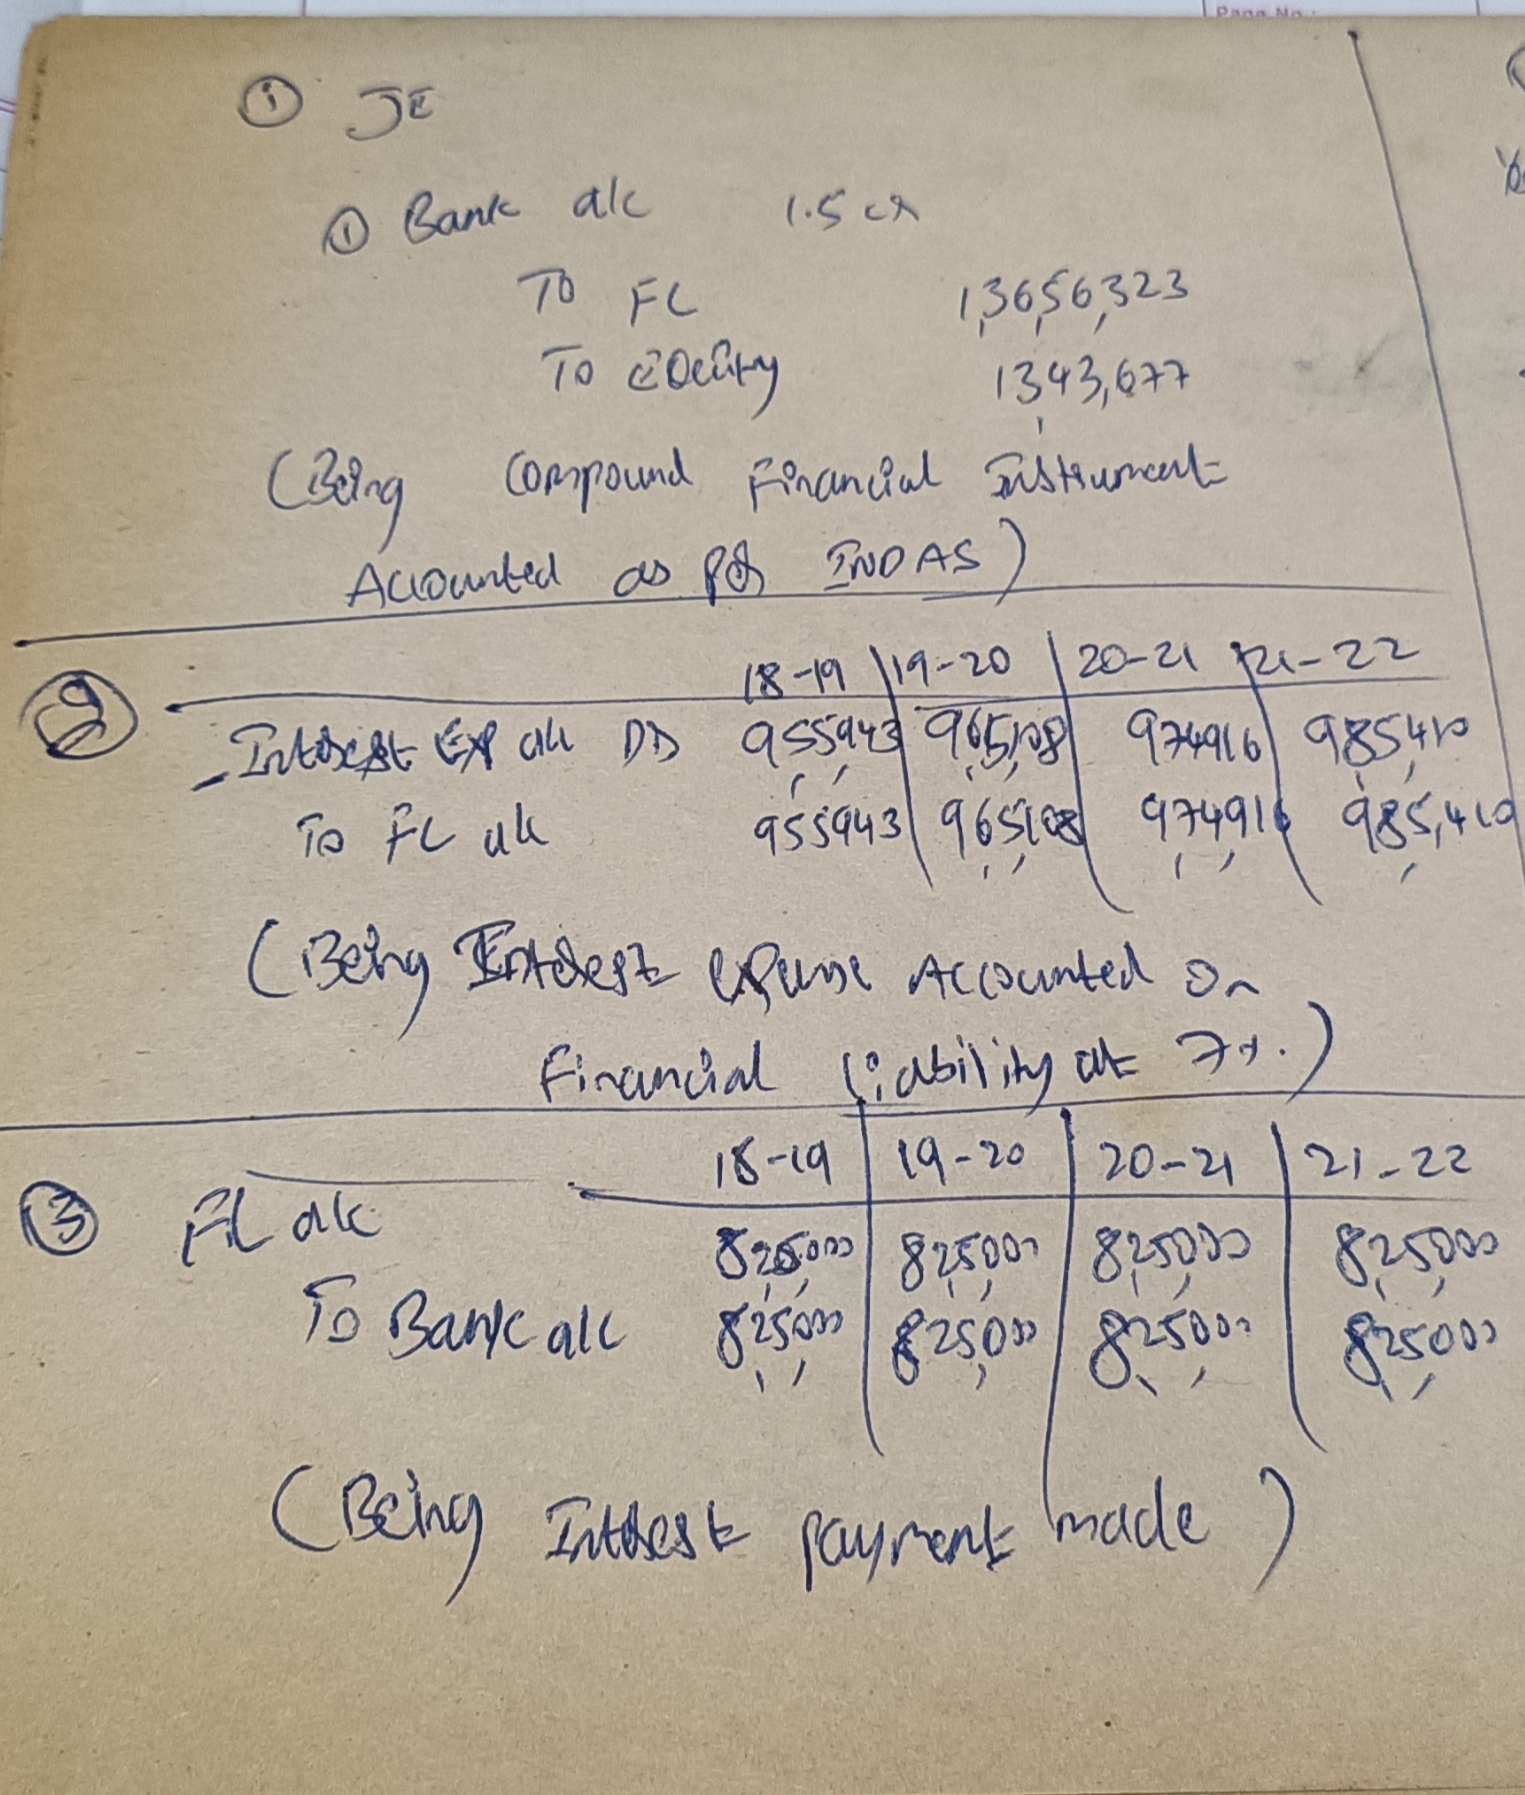 Page No.:
① JE
① Bank a/c 1.5 cr
To FL 1,36,56,323
To Equity 13,43,677
(Being Compound Financial Instrument
Accounted as per INDAS)
18-19 19-20 20-21 21-22
② Interest Exp a/c DD 9,55,943 9,65,108 974916 9,85,410
To FL a/c 955943 9,65,108 9,74,916 985,410
(Being Interest expense Accounted on
Financial Liability at 7%.)
18-19 19-20 20-21 21-22
③ FL a/c 8,25,000 8,25,000 8,25,000 8,25,000
To Bank a/c 8,25,000 825,000 8,25,000 8,25,000
(Being Interest payment made)